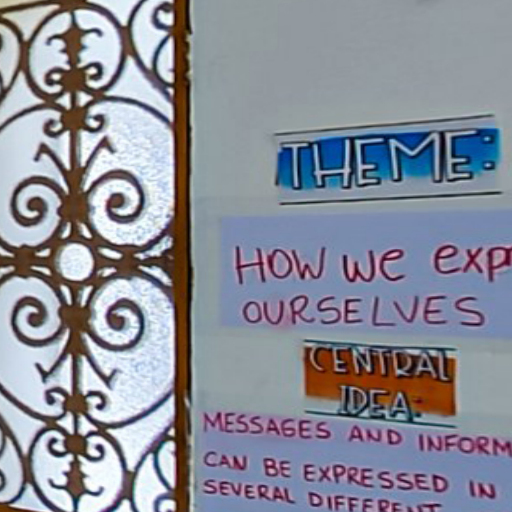 THEME:
HOW we exp
OURSELVES
CENTRAL
IDEA:
MESSAGES AND INFORM
CAN BE EXPRESSED IN
SEVERAL DIFFERENT